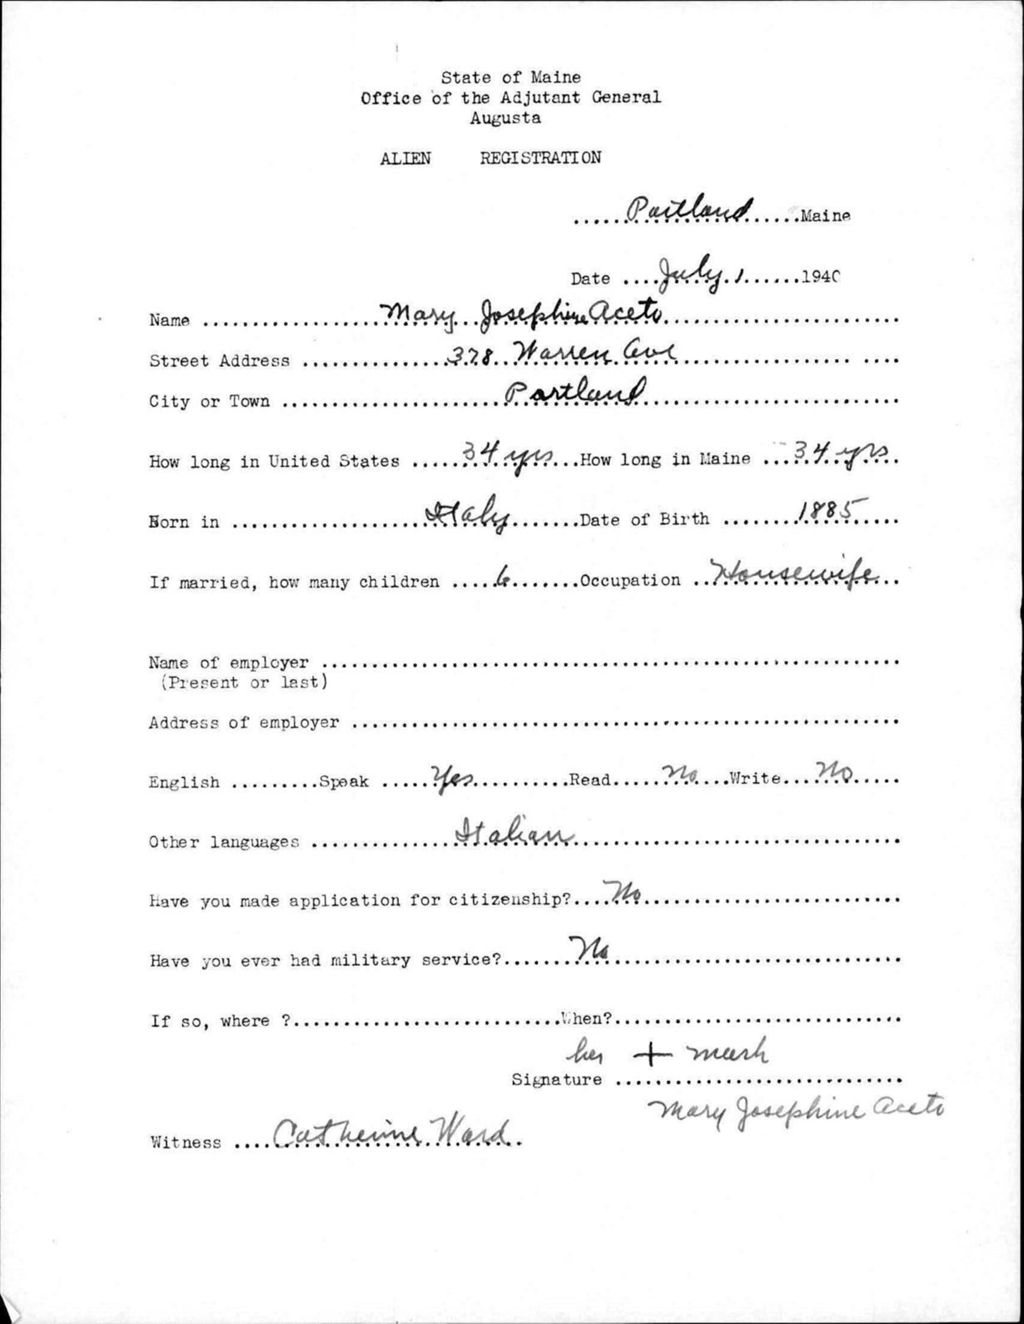 State of Maine
Office of the Adjutant General
Augusta
ALIEN REGISTRATION
......Portland......Maine
Date ....July 1......1940
Name ..................Mary Josephine Aceto........................
Street Address ..............378 Warren Ave.................. ....
City or Town ......................Portland..........................
How long in United States .....34 yrs...How long in Maine ...34 yrs.
Born in ...................Italy.......Date of Birth ........1885.....
If married, how many children ....6.......Occupation ..Housewife...
Name of employer ..........................................................
(Present or last)
Address of employer .......................................................
English .........Speak .....Yes..........Read.....No...Write...No.....
Other languages ..............Italian.................................
Have you made application for citizenship?....No..........................
Have you ever had military service?.......No.............................
If so, where ?...........................When?.............................
her + mark
Signature .............................
Mary Josephine Aceto
Witness ....Catherine Ward.